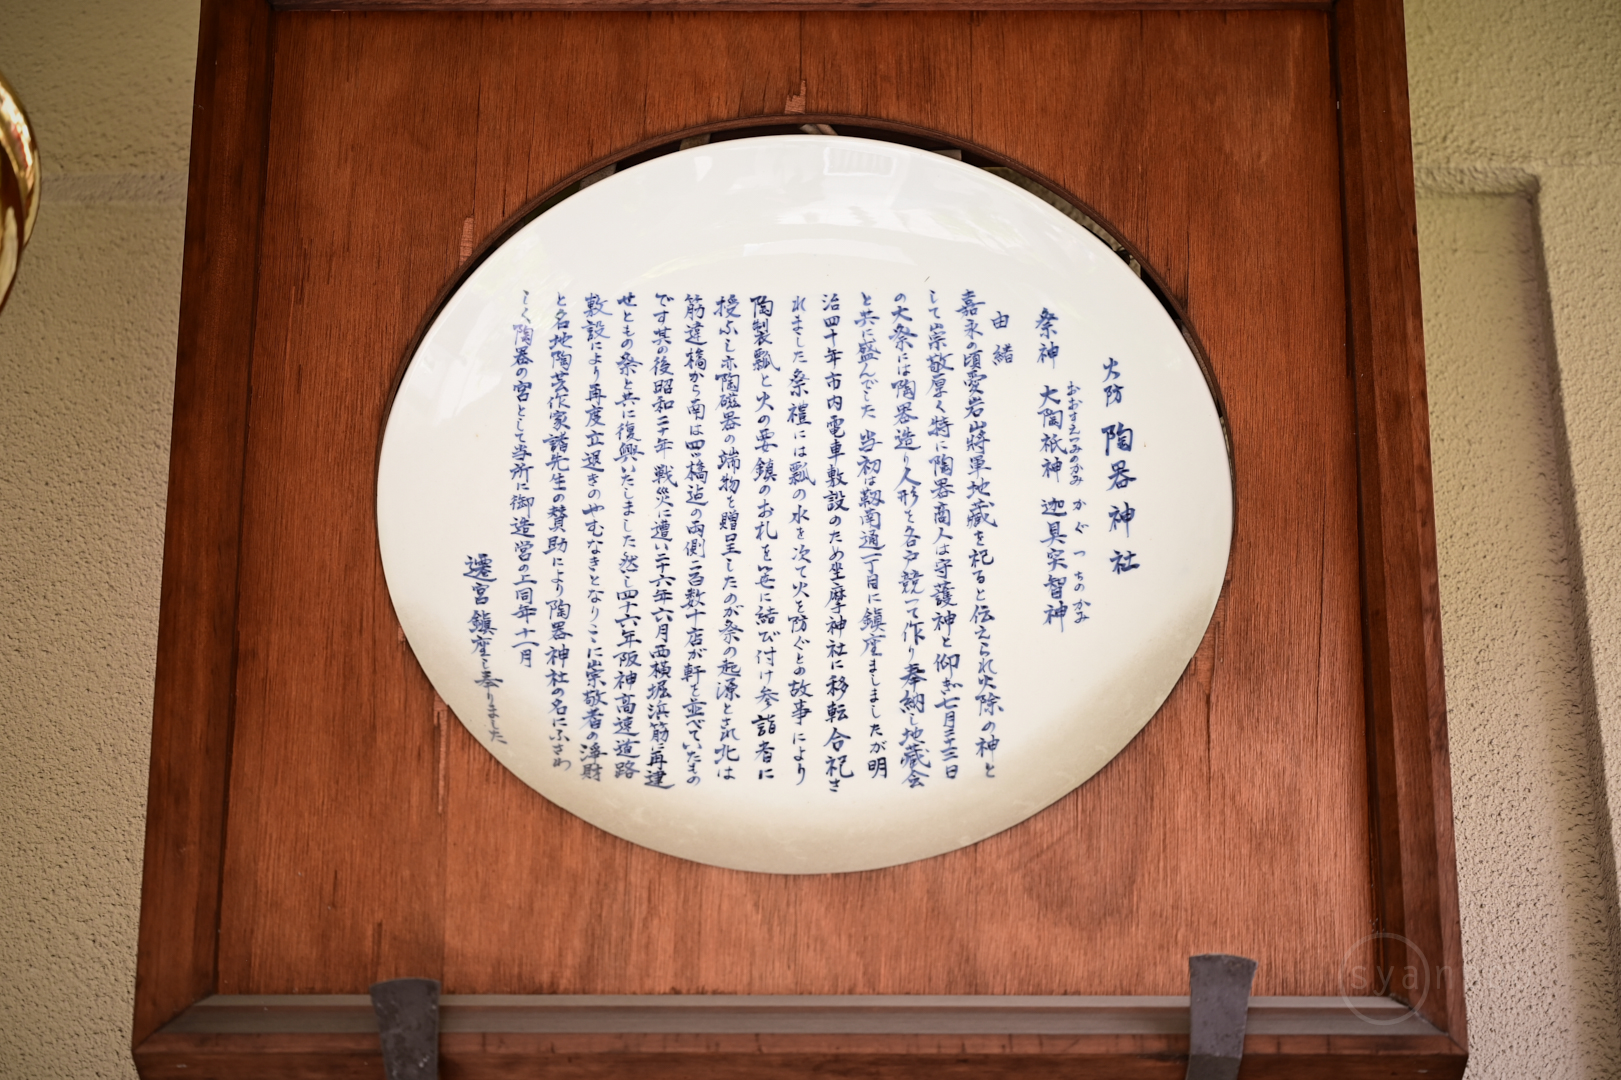 火防 陶器神社
祭神 大陶祇神 迦具突智神
おおすえつみのかみ かぐつちのかみ
由緒
嘉永の頃愛宕山將軍地蔵を祀ると伝えられ火除の神と
して崇敬厚く特に陶器商人は守護神と仰ぎ七月二十三日
の大祭には陶器造り人形を各戸競って作り奉納し地蔵会
と共に盛んでした 当初は靱南通一丁目に鎮座ましましたが明
治四十年市内電車敷設のため坐摩神社に移転合祀さ
れました祭禮には瓢の水を次て火を防ぐとの故事により
陶製瓢と火の要鎮のお札を笹に結び付け参詣者に
授ふし亦陶磁器の端物を贈呈したのが祭の起源とされ北は
筋違橋から南は四ツ橋迠の両側に百数十店が軒を並べていたもの
です其の後昭和二十年戦災に遭い二十六年六月西横堀浜筋に再建
せともの祭と共に復興いたしました然し四十六年阪神高速道路
敷設により再度立退きのやむなきとなりここに崇敬者の浄財
と各地陶芸作家諸先生の賛助により陶器神社の名にふさわ
しく陶器の宮として当所に御造営の上同年十一月
遷宮鎮座し奉りました
syan